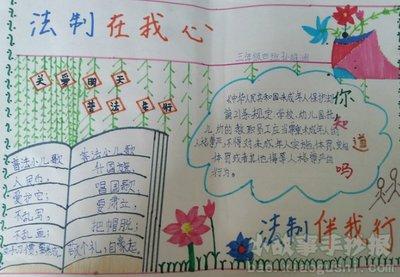 法制在我心
三年级四班
关爱明天
普法先行
普法小儿歌
人定日,
爱护它;
不乱用,
不乱画;
普法小儿歌
升国旗,
唱国歌,
要肃立,
把帽脱;
敬个礼,自豪起,
《中华人民共和国未成年人保护法》
第21条规定:学校、幼儿园、托
儿所的教职员工应当尊重未成年人的
人格尊严,不得对未成年人实施体罚、变相
体罚或者其他侮辱人格尊严的
行为。
你知道吗
法制伴我行